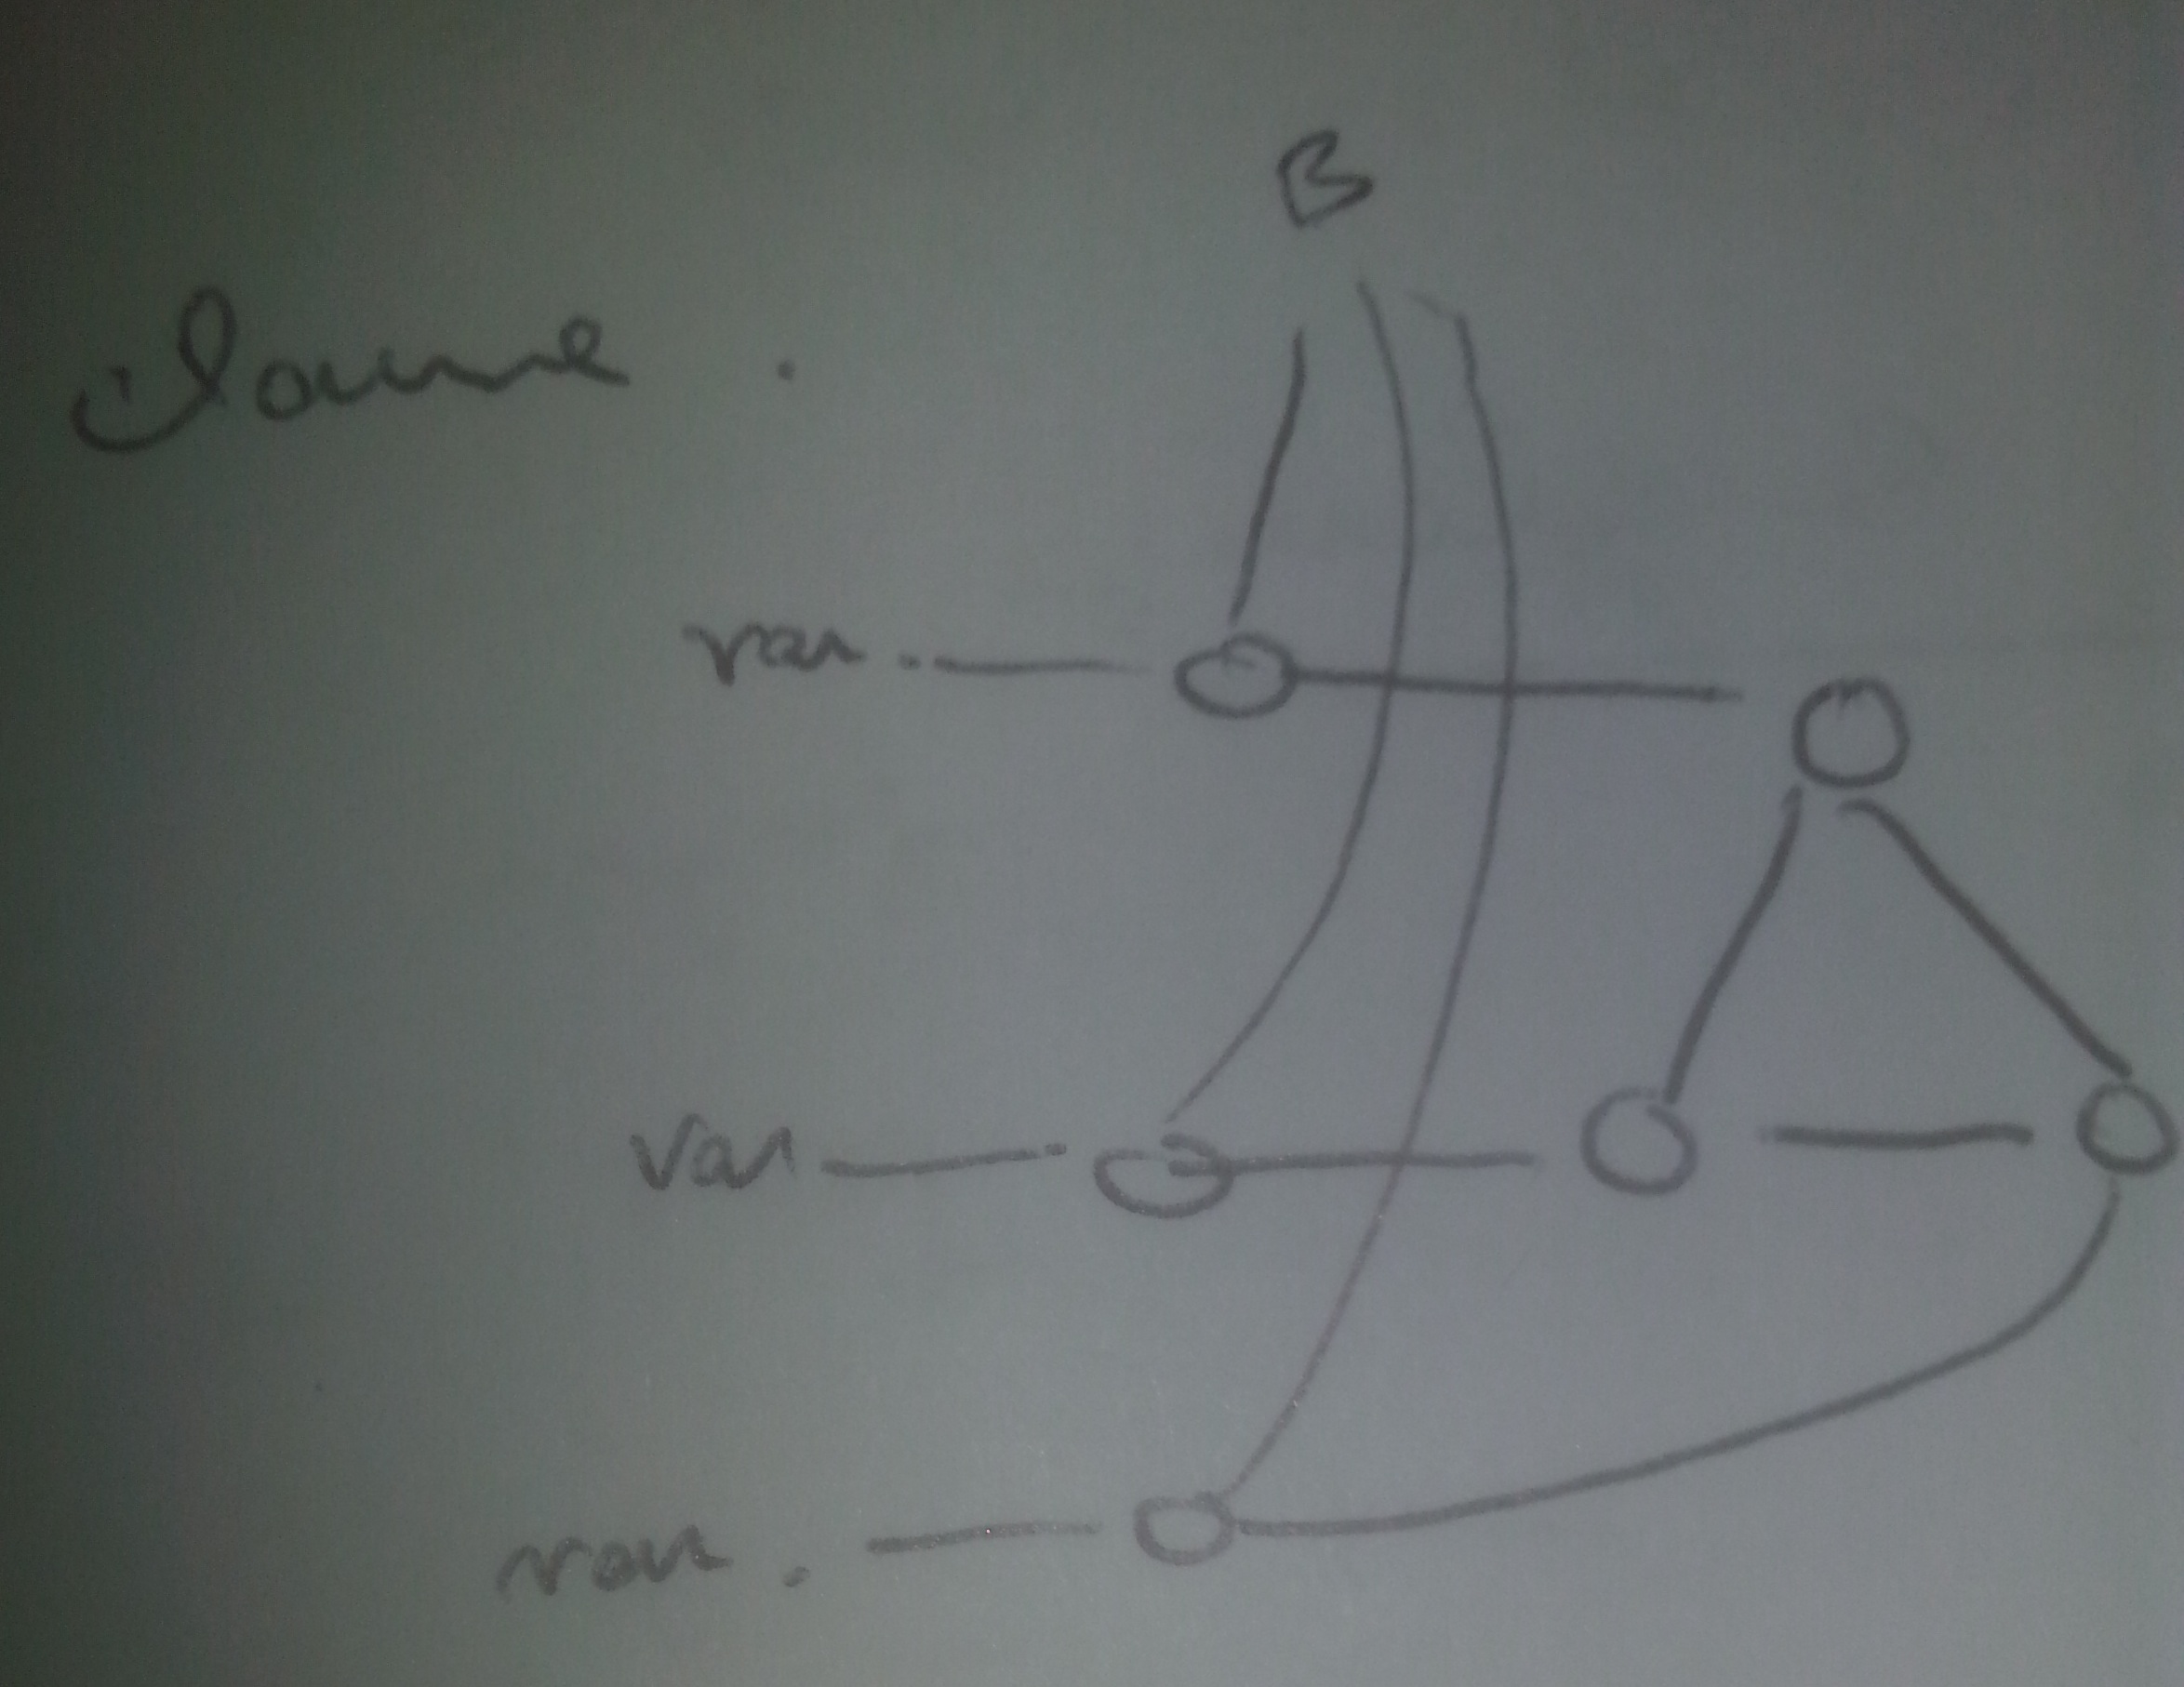 B
clause .
var.
var
var .